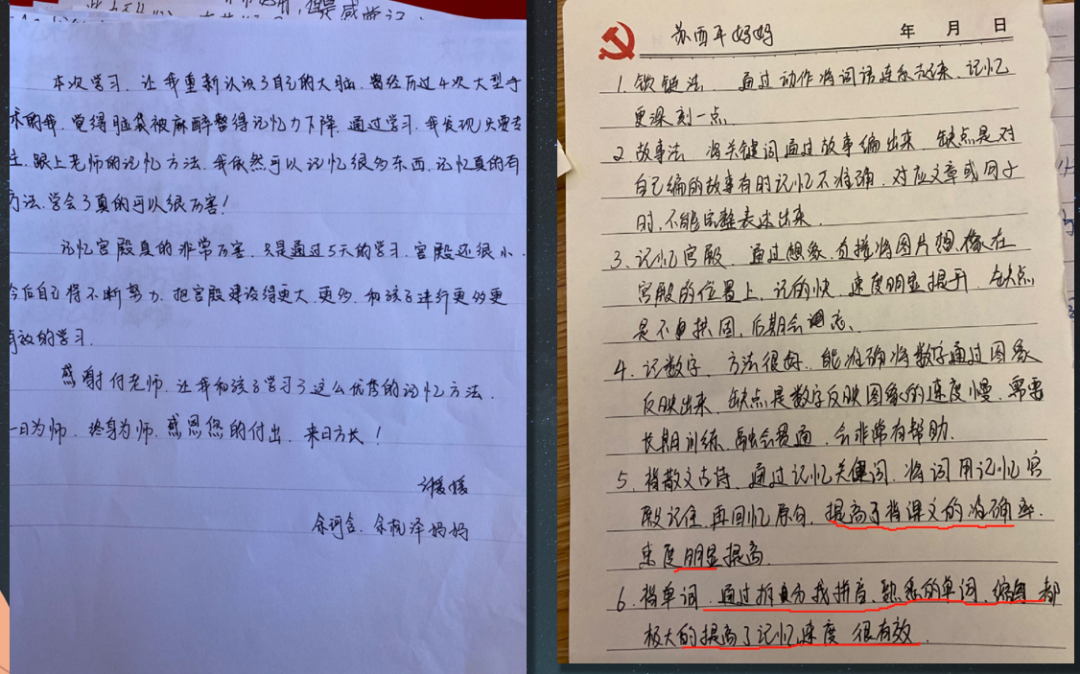 但是感觉记
本次学习，让我重新认识了自己的大脑，曾经历过4次大型手
术的我，觉得脑袋被麻醉暂得记忆力下降，通过学习，我发现只要专
注，跟上老师的记忆方法，我依然可以记忆很多东西，记忆真的有
方法，学会了真的可以很厉害！
记忆宫殿真的非常厉害，只是通过5天的学习，宫殿还很小，
今后自己得不断努力，把宫殿建设得更大，更多，和孩子进行更多更
有效的学习。
感谢付老师，让我和孩子学习了这么优秀的记忆方法，
一日为师，终身为师，感恩您的付出，来日方长！
妈妈
苏西平妈妈 年 月 日
1、锁链法，通过动作将词语连系起来，记忆
更深刻一点。
2、故事法，将关键词通过故事编出来，缺点是对
自己编的故事有时记忆不准确，对应文章或句子
时，不能完整表述出来。
3、记忆宫殿，通过想象，直接将图片想像在
宫殿的位置上，记的快，速度明显提升，缺点
是不，后期会遗忘、
4、记数字，方法很好，能准确将数字通过图象
反映出来，缺点是数字反映图象的速度慢，需要
长期训练，融会贯通，会非常有帮助。
5、背散文古诗，通过记忆关健词，将词用记忆宫
殿记住，再回忆原句，提高了背课文的准确率，
速度明显提高。
6、背单词，通过拆找拼音、熟悉的单词、编码 都
极大的提高了记忆速度 很有效